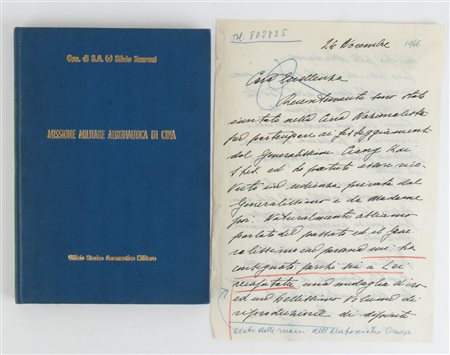 Gen. di S.A. (r) Silvio Scaroni
MISSIONE MILITARE AERONAUTICA IN CINA
Ufficio Storico Aeronautica Militare
Tel. 802825
24 Novembre 1966
Cara Eccellenza
Recentemente sono stato
invitato nella Cina Nazionalista
per partecipare ai festeggiamenti
del Generalissimo Ciang Kai
Shek ed ho potuto essere rice-
vuto in udienza privata dal
Generalissimo e da Madame
. Naturalmente abbiamo
parlato del passato ed il Gene-
ralissimo in persona mi ha
consegnato perché sia a Lei
recapitata una medaglia d'oro
ed un bellissimo volume di
riproduzione di dipinti